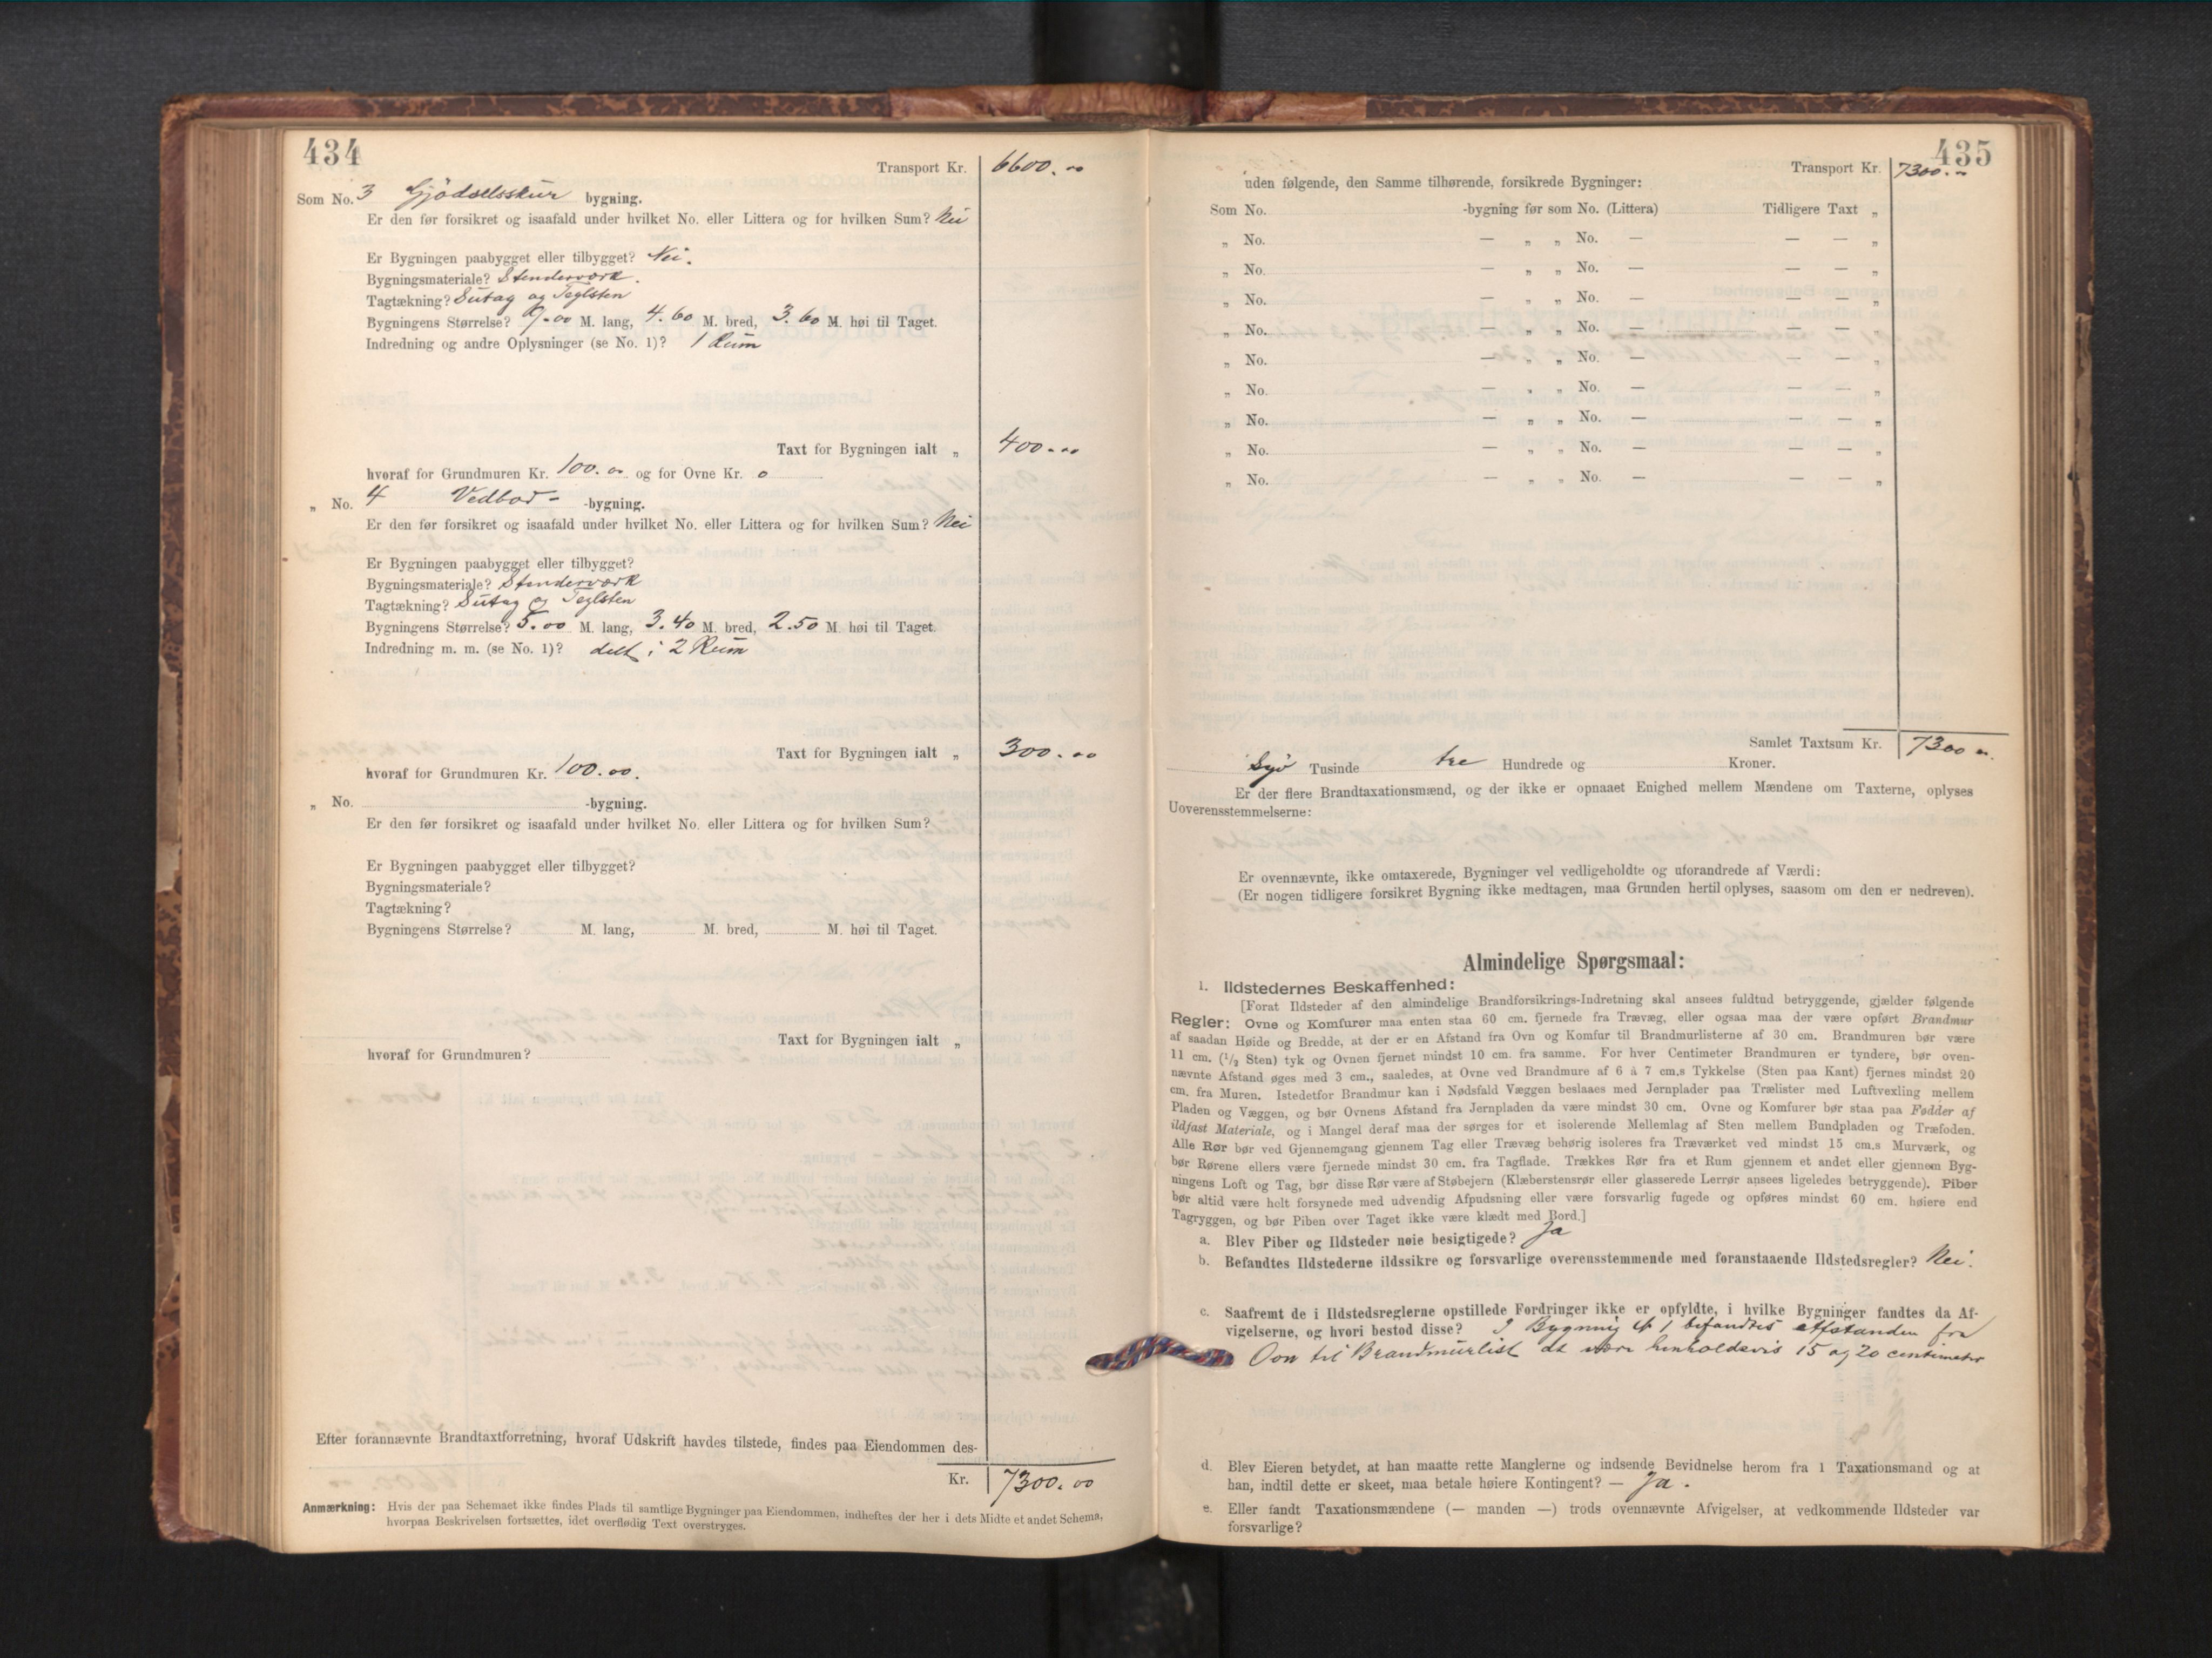 434
Transport Kr. 6600.00
Som No. 3 Gjødselsskur bygning.
Er den før forsikret og isaafald under hvilket No. eller Littera og for hvilken Sum? Nei
Er Bygningen paabygget eller tilbygget? Nei.
Bygningsmateriale? Stenderværk.
Tagtækning? Sutag og Teglsten
Bygningens Størrelse? 9.00 M. lang, 4.60 M. bred, 3.60 M. høi til Taget.
Indredning og andre Oplysninger (se No. 1)? 1 Rum
Taxt for Bygningen ialt „ 400.00
hvoraf for Grundmuren Kr. 100.00 og for Ovne Kr. 0
„ No. 4 Vedbod- -bygning.
Er den før forsikret og isaafald under hvilket No. eller Littera og for hvilken Sum? Nei
Er Bygningen paabygget eller tilbygget?
Bygningsmateriale? Stenderværk
Tagtækning? Sutag og Teglsten
Bygningens Størrelse? 5.00 M. lang, 3.40 M. bred, 2.50 M. høi til Taget.
Indredning m. m. (se No. 1)? delt i 2 Rum
Taxt for Bygningen ialt „ 300.00
hvoraf for Grundmuren Kr. 100.00.
„ No. -bygning.
Er den før forsikret og isaafald under hvilket No. eller Littera og for hvilken Sum?
Er Bygningen paabygget eller tilbygget?
Bygningsmateriale?
Tagtækning?
Bygningens Størrelse? M. lang, M. bred, M. høi til Taget.
Taxt for Bygningen ialt „
hvoraf for Grundmuren?
Efter forannævnte Brandtaxtforretning, hvoraf Udskrift havdes tilstede, findes paa Eiendommen des-
Kr. 7300.00
Anmærkning: Hvis der paa Schemaet ikke findes Plads til samtlige Bygninger paa Eiendommen, indheftes der her i dets Midte et andet Schema,
hvorpaa Beskrivelsen fortsættes, idet overflødig Text overstryges.
435
Transport Kr. 7300.00
uden følgende, den Samme tilhørende, forsikrede Bygninger:
Som No. -bygning før som No. (Littera) Tidligere Taxt „
„ No. — „ „ No. — — — „
„ No. — „ „ No. — — — „
„ No. — „ „ No. — — — „
„ No. — „ „ No. — — — „
„ No. — „ „ No. — — — „
„ No. — „ „ No. — — — „
„ No. — „ „ No. — — — „
„ No. — „ „ No. — — — „
„ No. — „ „ No. — — — „
Samlet Taxtsum Kr. 7300 00.
Syv Tusinde tre Hundrede og Kroner.
Er der flere Brandtaxationsmænd, og der ikke er opnaaet Enighed mellem Mændene om Taxterne, oplyses
Uoverensstemmelserne:
Er ovennævnte, ikke omtaxerede, Bygninger vel vedligeholdte og uforandrede af Værdi:
(Er nogen tidligere forsikret Bygning ikke medtagen, maa Grunden hertil oplyses, saasom om den er nedreven).
Almindelige Spørgsmaal:
1. Ildstedernes Beskaffenhed:
[Forat Ildsteder af den almindelige Brandforsikrings-Indretning skal ansees fuldtud betryggende, gjælder følgende
Regler: Ovne og Komfurer maa enten staa 60 cm. fjernede fra Trævæg, eller ogsaa maa der være opført Brandmur
af saadan Høide og Bredde, at der er en Afstand fra Ovn og Komfur til Brandmurlisterne af 30 cm. Brandmuren bør være
11 cm. (1/2 Sten) tyk og Ovnen fjernet mindst 10 cm. fra samme. For hver Centimeter Brandmuren er tyndere, bør oven-
nævnte Afstand øges med 3 cm., saaledes, at Ovne ved Brandmure af 6 à 7 cm.s Tykkelse (Sten paa Kant) fjernes mindst 20
cm. fra Muren. Istedetfor Brandmur kan i Nødsfald Væggen beslaaes med Jernplader paa Trælister med Luftvexling mellem
Pladen og Væggen, og bør Ovnens Afstand fra Jernpladen da være mindst 30 cm. Ovne og Komfurer bør staa paa Fødder af
ildfast Materiale, og i Mangel deraf maa der sørges for et isolerende Mellemlag af Sten mellem Bundpladen og Træfoden.
Alle Rør bør ved Gjennemgang gjennem Tag eller Trævæg behørig isoleres fra Træværket ved mindst 15 cm.s Murværk, og
bør Rørene ellers være fjernede mindst 30 cm. fra Tagflade. Trækkes Rør fra et Rum gjennem et andet eller gjennem Byg-
ningens Loft og Tag, bør disse Rør være af Støbejern (Klæberstensrør eller glasserede Lerrør ansees ligeledes betryggende). Piber
bør altid være helt forsynede med udvendig Afpudsning eller være forsvarlig fugede og opføres mindst 60 cm. høiere end
Tagryggen, og bør Piben over Taget ikke være klædt med Bord.]
a. Blev Piber og Ildsteder nøie besigtigede? Ja
b. Befandtes Ildstederne ildssikre og forsvarlige overensstemmende med foranstaaende Ildstedsregler? Nei.
c. Saafremt de i Ildstedsreglerne opstillede Fordringer ikke er opfyldte, i hvilke Bygninger fandtes da Af-
vigelserne, og hvori bestod disse? I Bygning № 1 befandtes Afstanden fra
Ovn til Brandmurlist at være henholdsvis 15 og 20 centimeter
d. Blev Eieren betydet, at han maatte rette Manglerne og indsende Bevidnelse herom fra 1 Taxationsmand og at
han, indtil dette er skeet, maa betale høiere Kontingent? — Ja.
e. Eller fandt Taxationsmændene (— manden —) trods ovennævnte Afvigelser, at vedkommende Ildsteder var
forsvarlige?